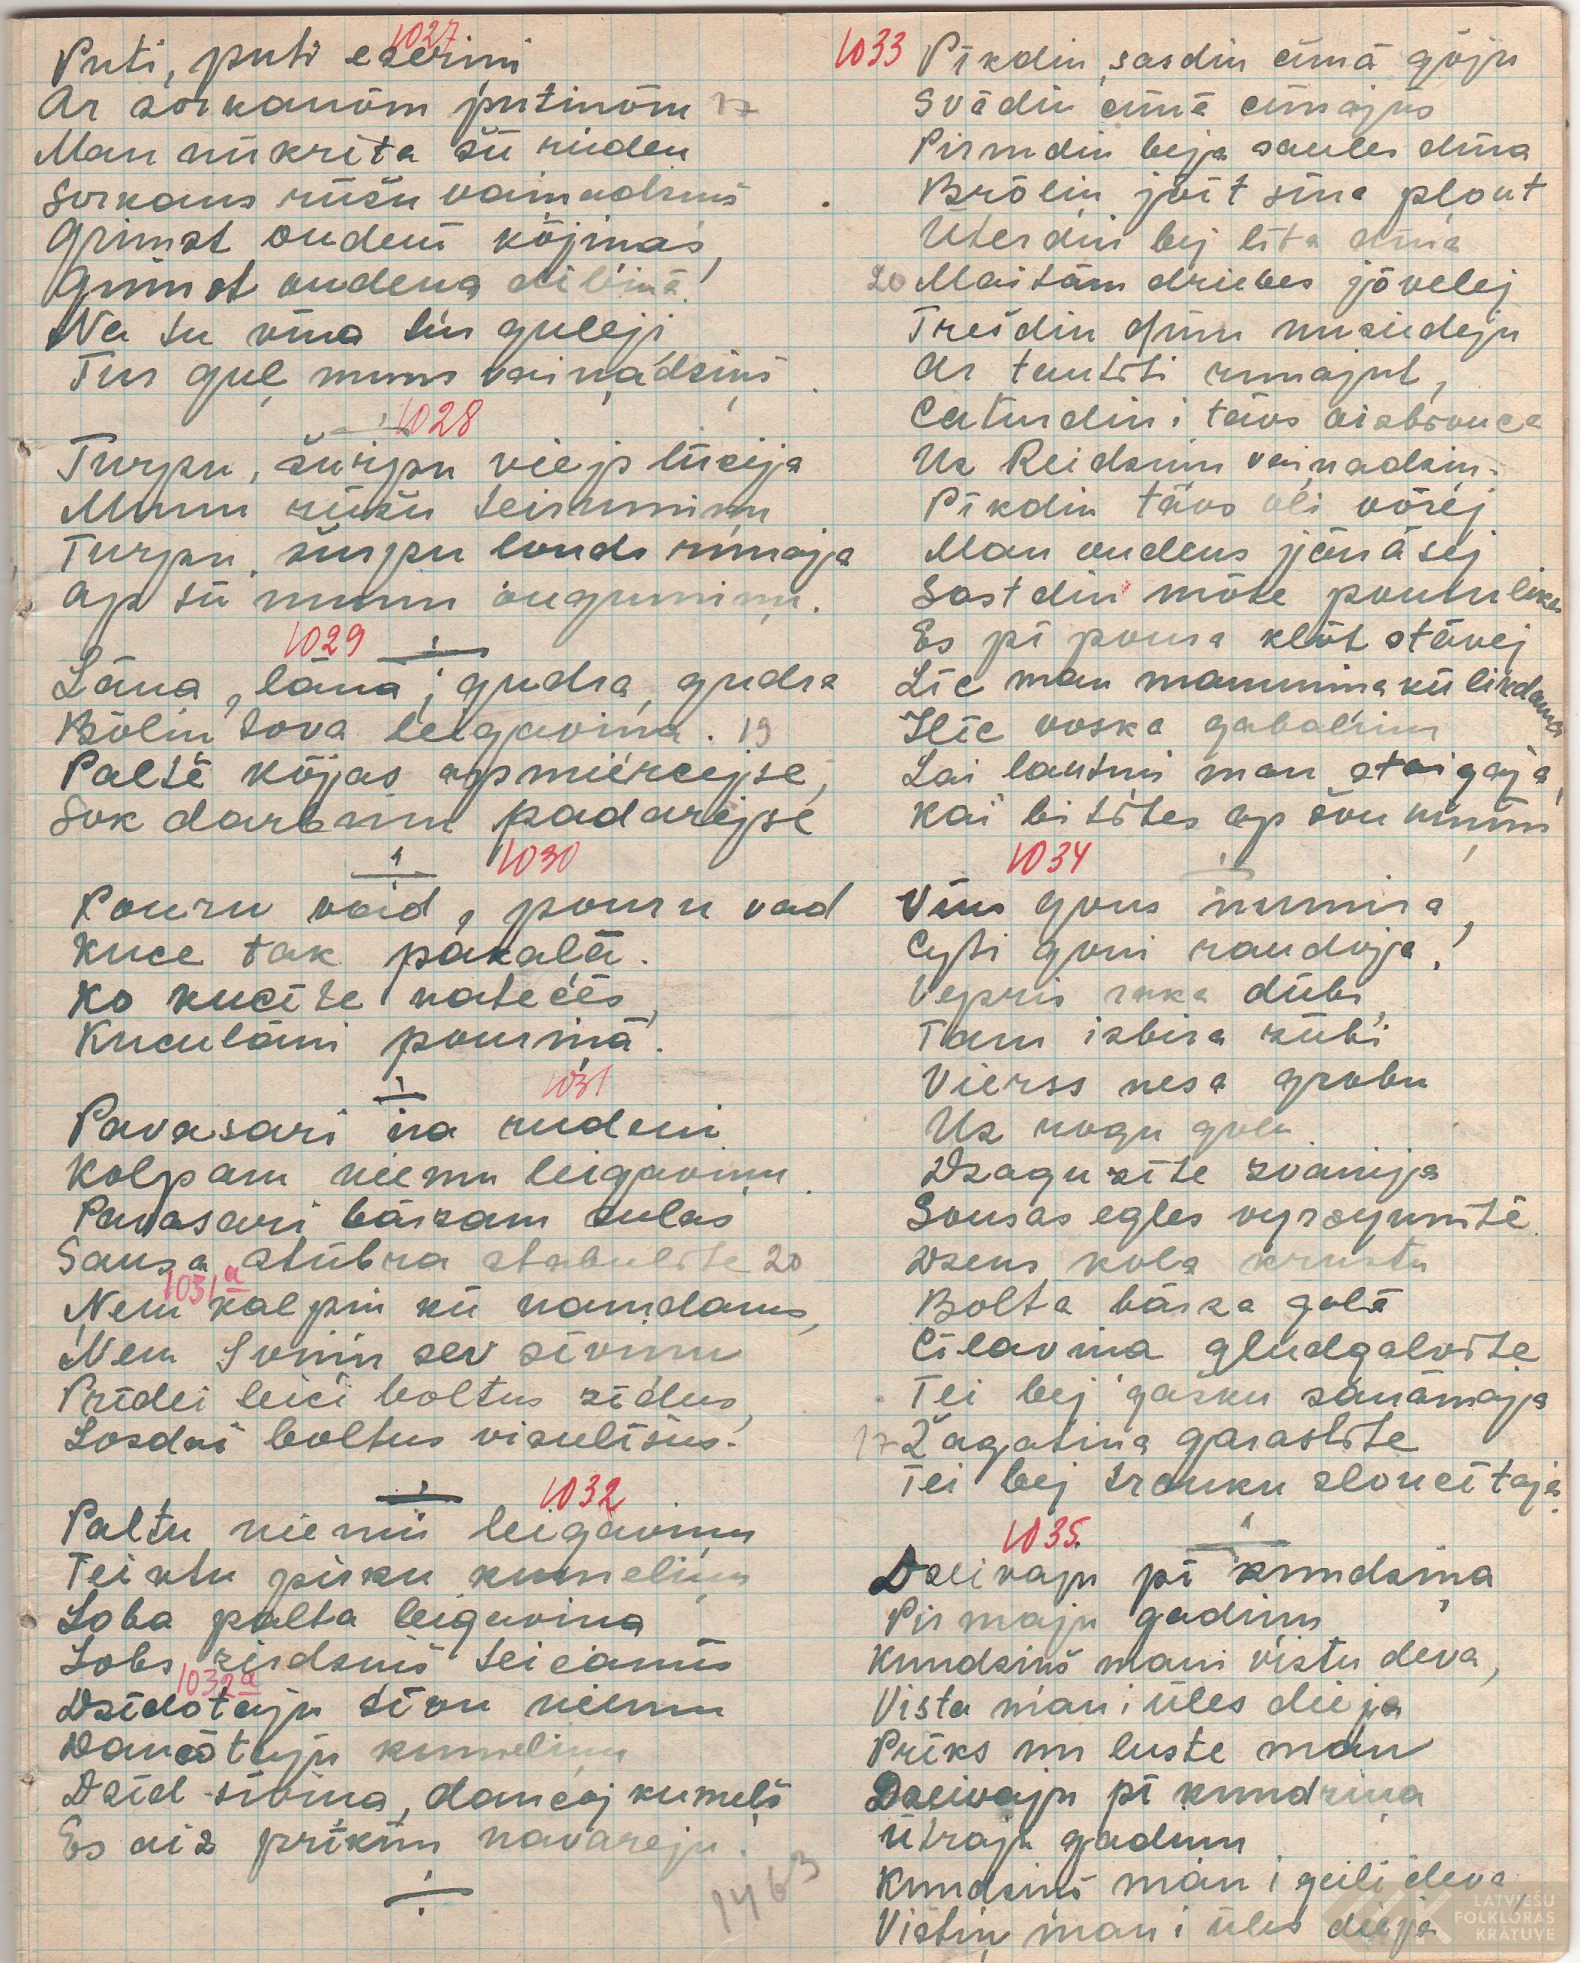 1027
Puti, puti ezerini
Ar sorkanōm putinōm 17
Man nūkrita šū rudeņ
Sorkans rūžu vainadziņš
Grimst oudenī kōjiņas,
Grimst oudeņa dibinā.
Na tu viņa tur guleji
Tur guļ muns vaiņadziņš.
1028
Turpu, šurpu viejs lūcija
Munu rūžu teirumiņu
Turpu, šurpu ļouds runoja
Ap šū munu ougumiņu.
1029
Lāna, lāna, gudra, gudra
Bōliņ tova leigaviņa. 19
Paltē kōjas apmiercejse,
Sok darbiņu padarejse
1030
Pouru vad, pouru vad
Kuce tak pakaļā.
Ko kuceite natecēs,
Kuculāni pouriņā.
1031
Pavasari na rudeni
Kolpam niemu leigaviņu.
Pavasari bārzam sulas
Sausa stūbra stabulite 20
1031a
Nem kalpiņ kū namdams,
Nem Svōniņ sev sīviņu
Prīdei leici boltus zīdus,
Lozdai boltus vizulīšus.
1032
Paltu niemū leigaviņu
Tei vtu pirku kumeliņu
Loba palta leigaviņa
Lobs zirdziņš teicamis
1032a
Dzīdōtaju sīvu niemu
Dancōtaju kumeliņu
Dzīd sīviņa, dancoj kumeļš
Es aiz prīkim navareju.
1463
1033 Pīkdin, sasdin cimā gōju
Svādiņ cimā cimajus
Pirmdiņ beja saules dīna
Brōliņ jōit sīna plout
Ūterdiņ bej līta dīna
20 Maitām driebes jōvelej
Trešdin dīnu nusiudeju
Ar tautīti runajut,
Caturdiņi tāvs aizbrouca
Uz Reidziņu vaiņadziņ.
Pīkdin tāvs oli vōrej
Man oudeņs jōnāsej
Sastdiņ mōte poutu lika
Es pī poura klōt stōvej
Līc man mamimiņa kū likdama
Ilīc voska gabaliņu
Lai lautiņi man staigaja,
Kai bitītes ap šou nimim
1034
Viņs gons numira,
Cyti goni raudoja.
Vepris raka dūbi,
Tam izbira zūbi
Vierss nesa grobu
Uz rogu golu
Dzaguzīte zvanija
Sousas egles vyrsyunītē
Dzeņs kola krustu
Bolta bārza golā
Cīlaviņa gludgalvīte
Tei bej gašku sanāmaja
17 Žagatiņa garastīte
Tei bej trouku sloucītaja.
1035.
Dzeivaju pī kundziņa
Pirmaju gadiņu
Kundziņš mani vistu deva,
Vista mani ūles dieja
Prīks un luste man
Dzeivaju pī kundziņa
Utraju gadiņu
Kundziņš man i gaili deva
Vistiņ man i ūlus dieja
LATVIEŠU
FOLKLORAS
KRĀTUVE